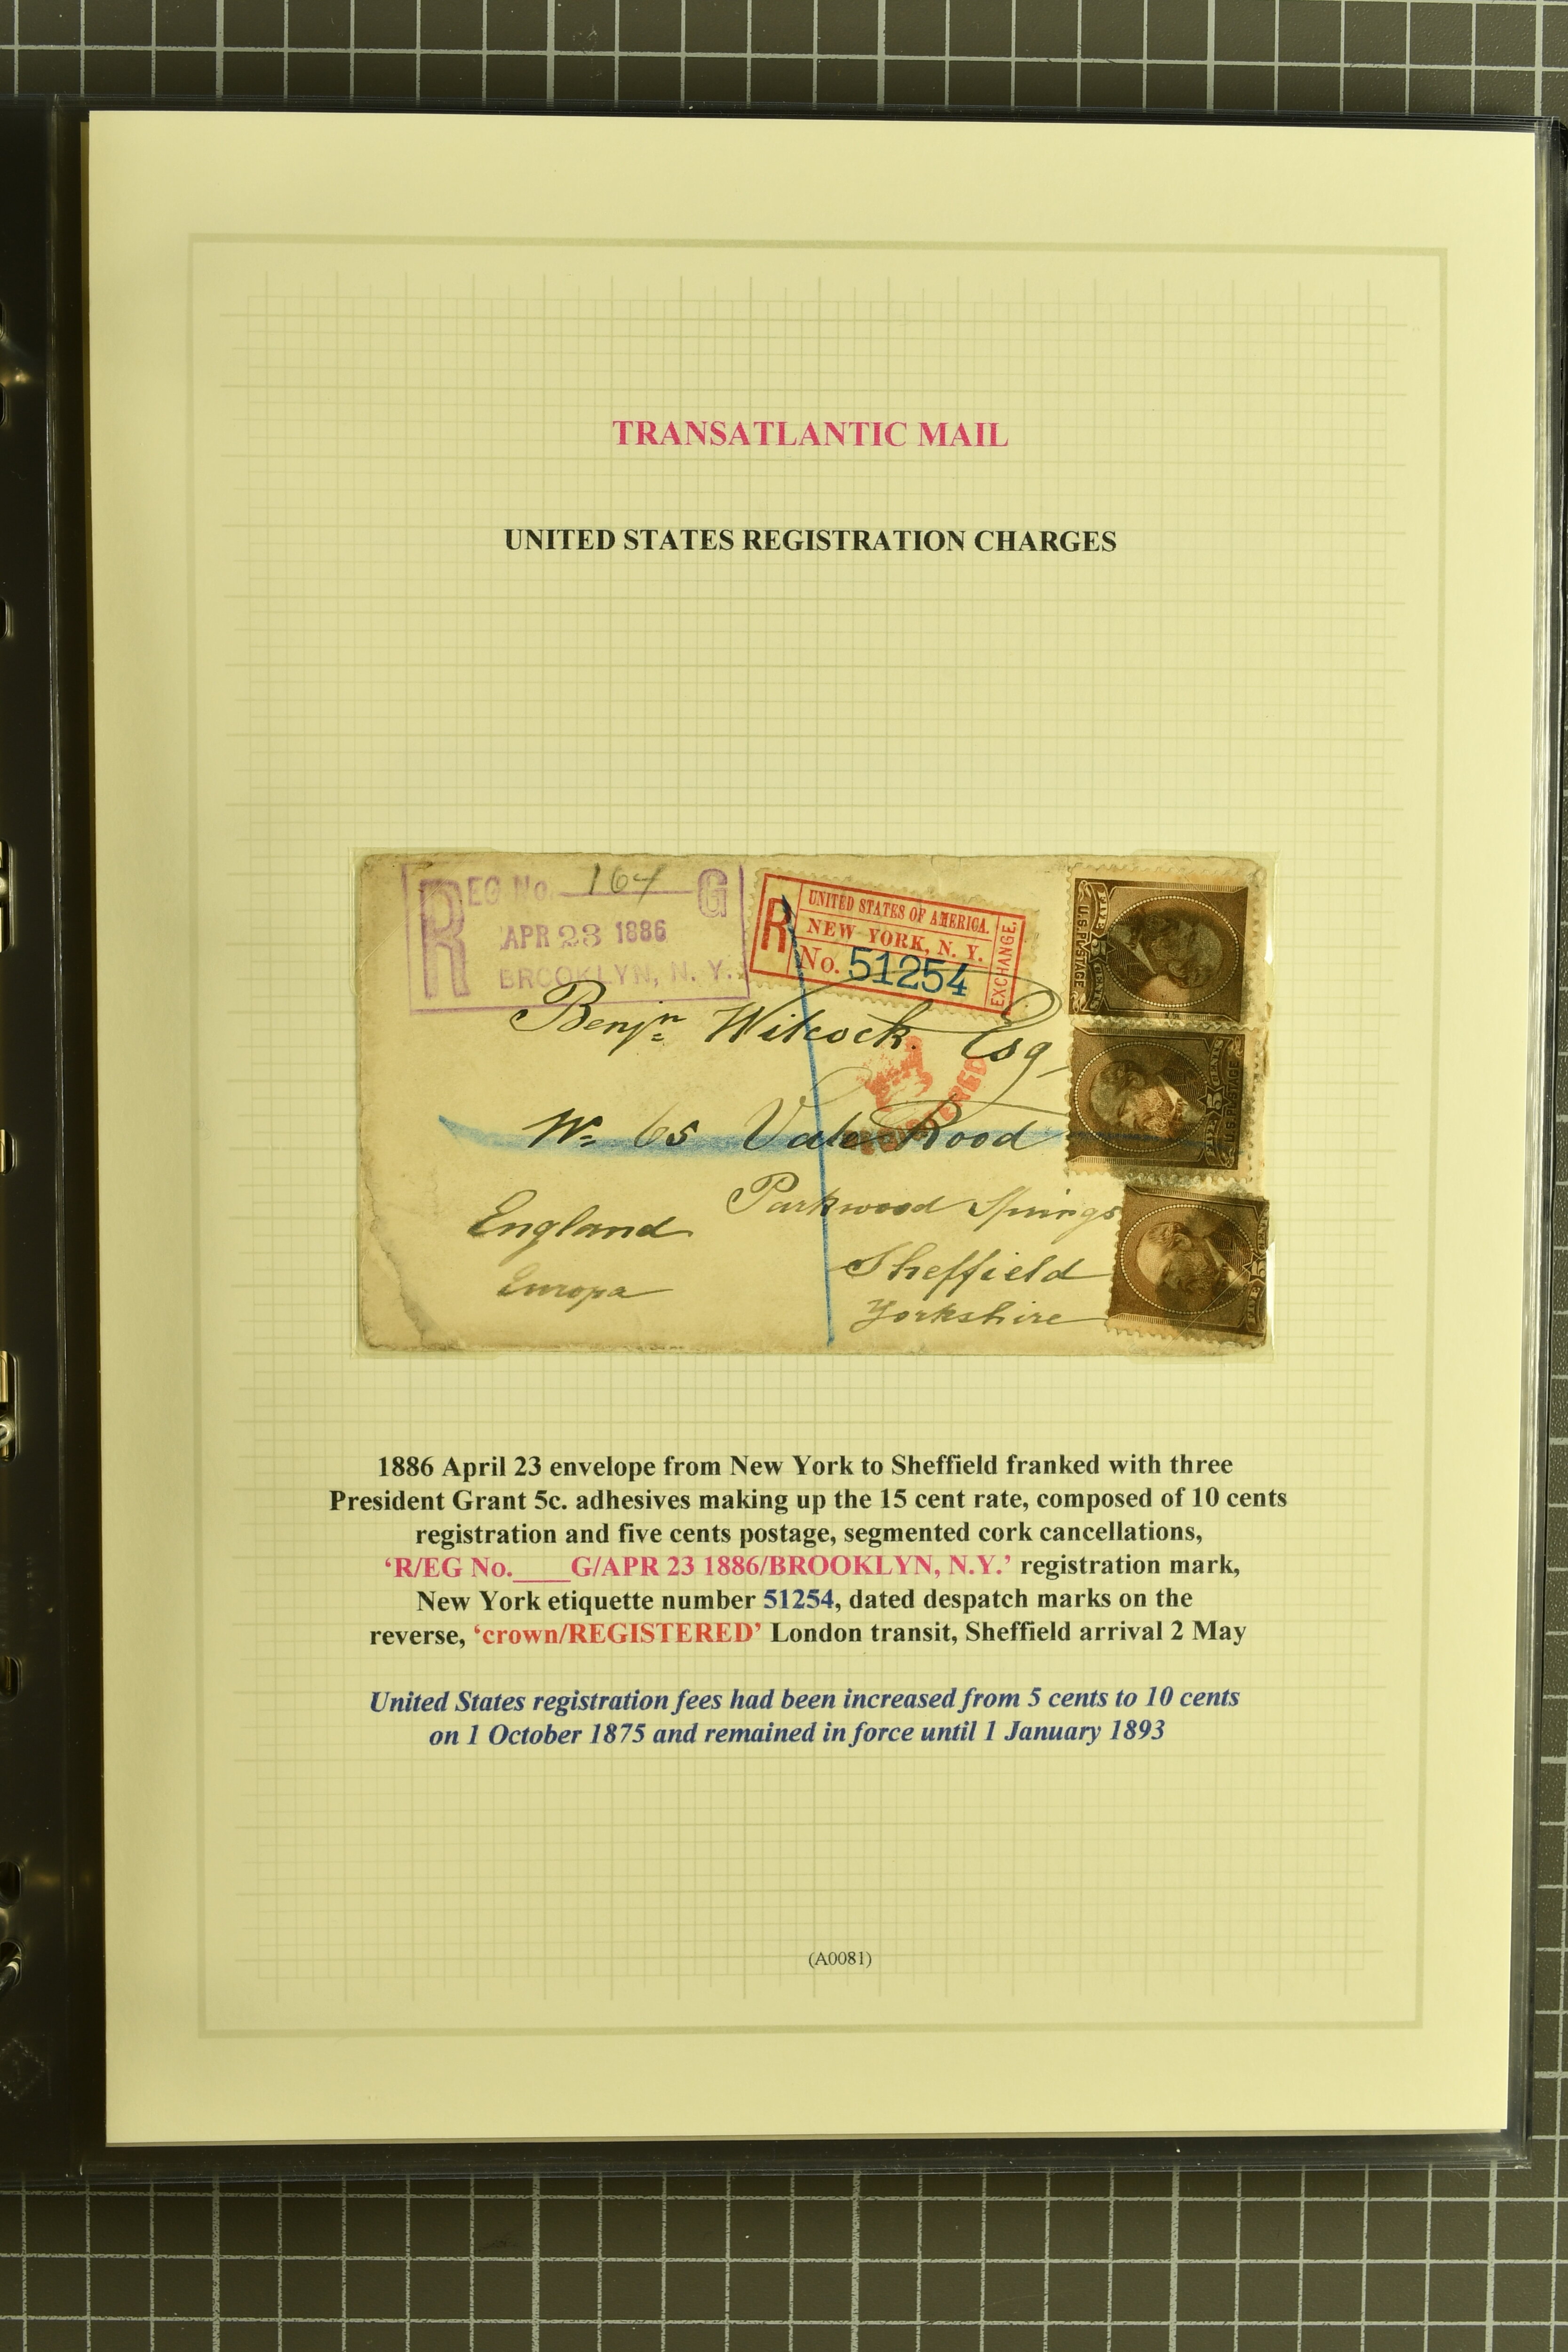 TRANSATLANTIC MAIL
UNITED STATES REGISTRATION CHARGES
REG No. 164 G
APR 23 1886
BROOKLYN, N. Y.
R
UNITED STATES OF AMERICA.
NEW YORK, N. Y.
No. 51254
EXCHANGE.
Benjn Wilcock. Esq
REGISTERED
No 65 Vale Road
Parkwood Springs
Sheffield
Yorkshire
England
Europa
FIVE 5 CENTS
U.S. POSTAGE
FIVE 5 CENTS
U.S. POSTAGE
FIVE 5 CENTS
1886 April 23 envelope from New York to Sheffield franked with three
President Grant 5c. adhesives making up the 15 cent rate, composed of 10 cents
registration and five cents postage, segmented cork cancellations,
‘R/EG No.____G/APR 23 1886/BROOKLYN, N.Y.’ registration mark,
New York etiquette number 51254, dated despatch marks on the
reverse, ‘crown/REGISTERED’ London transit, Sheffield arrival 2 May
United States registration fees had been increased from 5 cents to 10 cents
on 1 October 1875 and remained in force until 1 January 1893
(A0081)